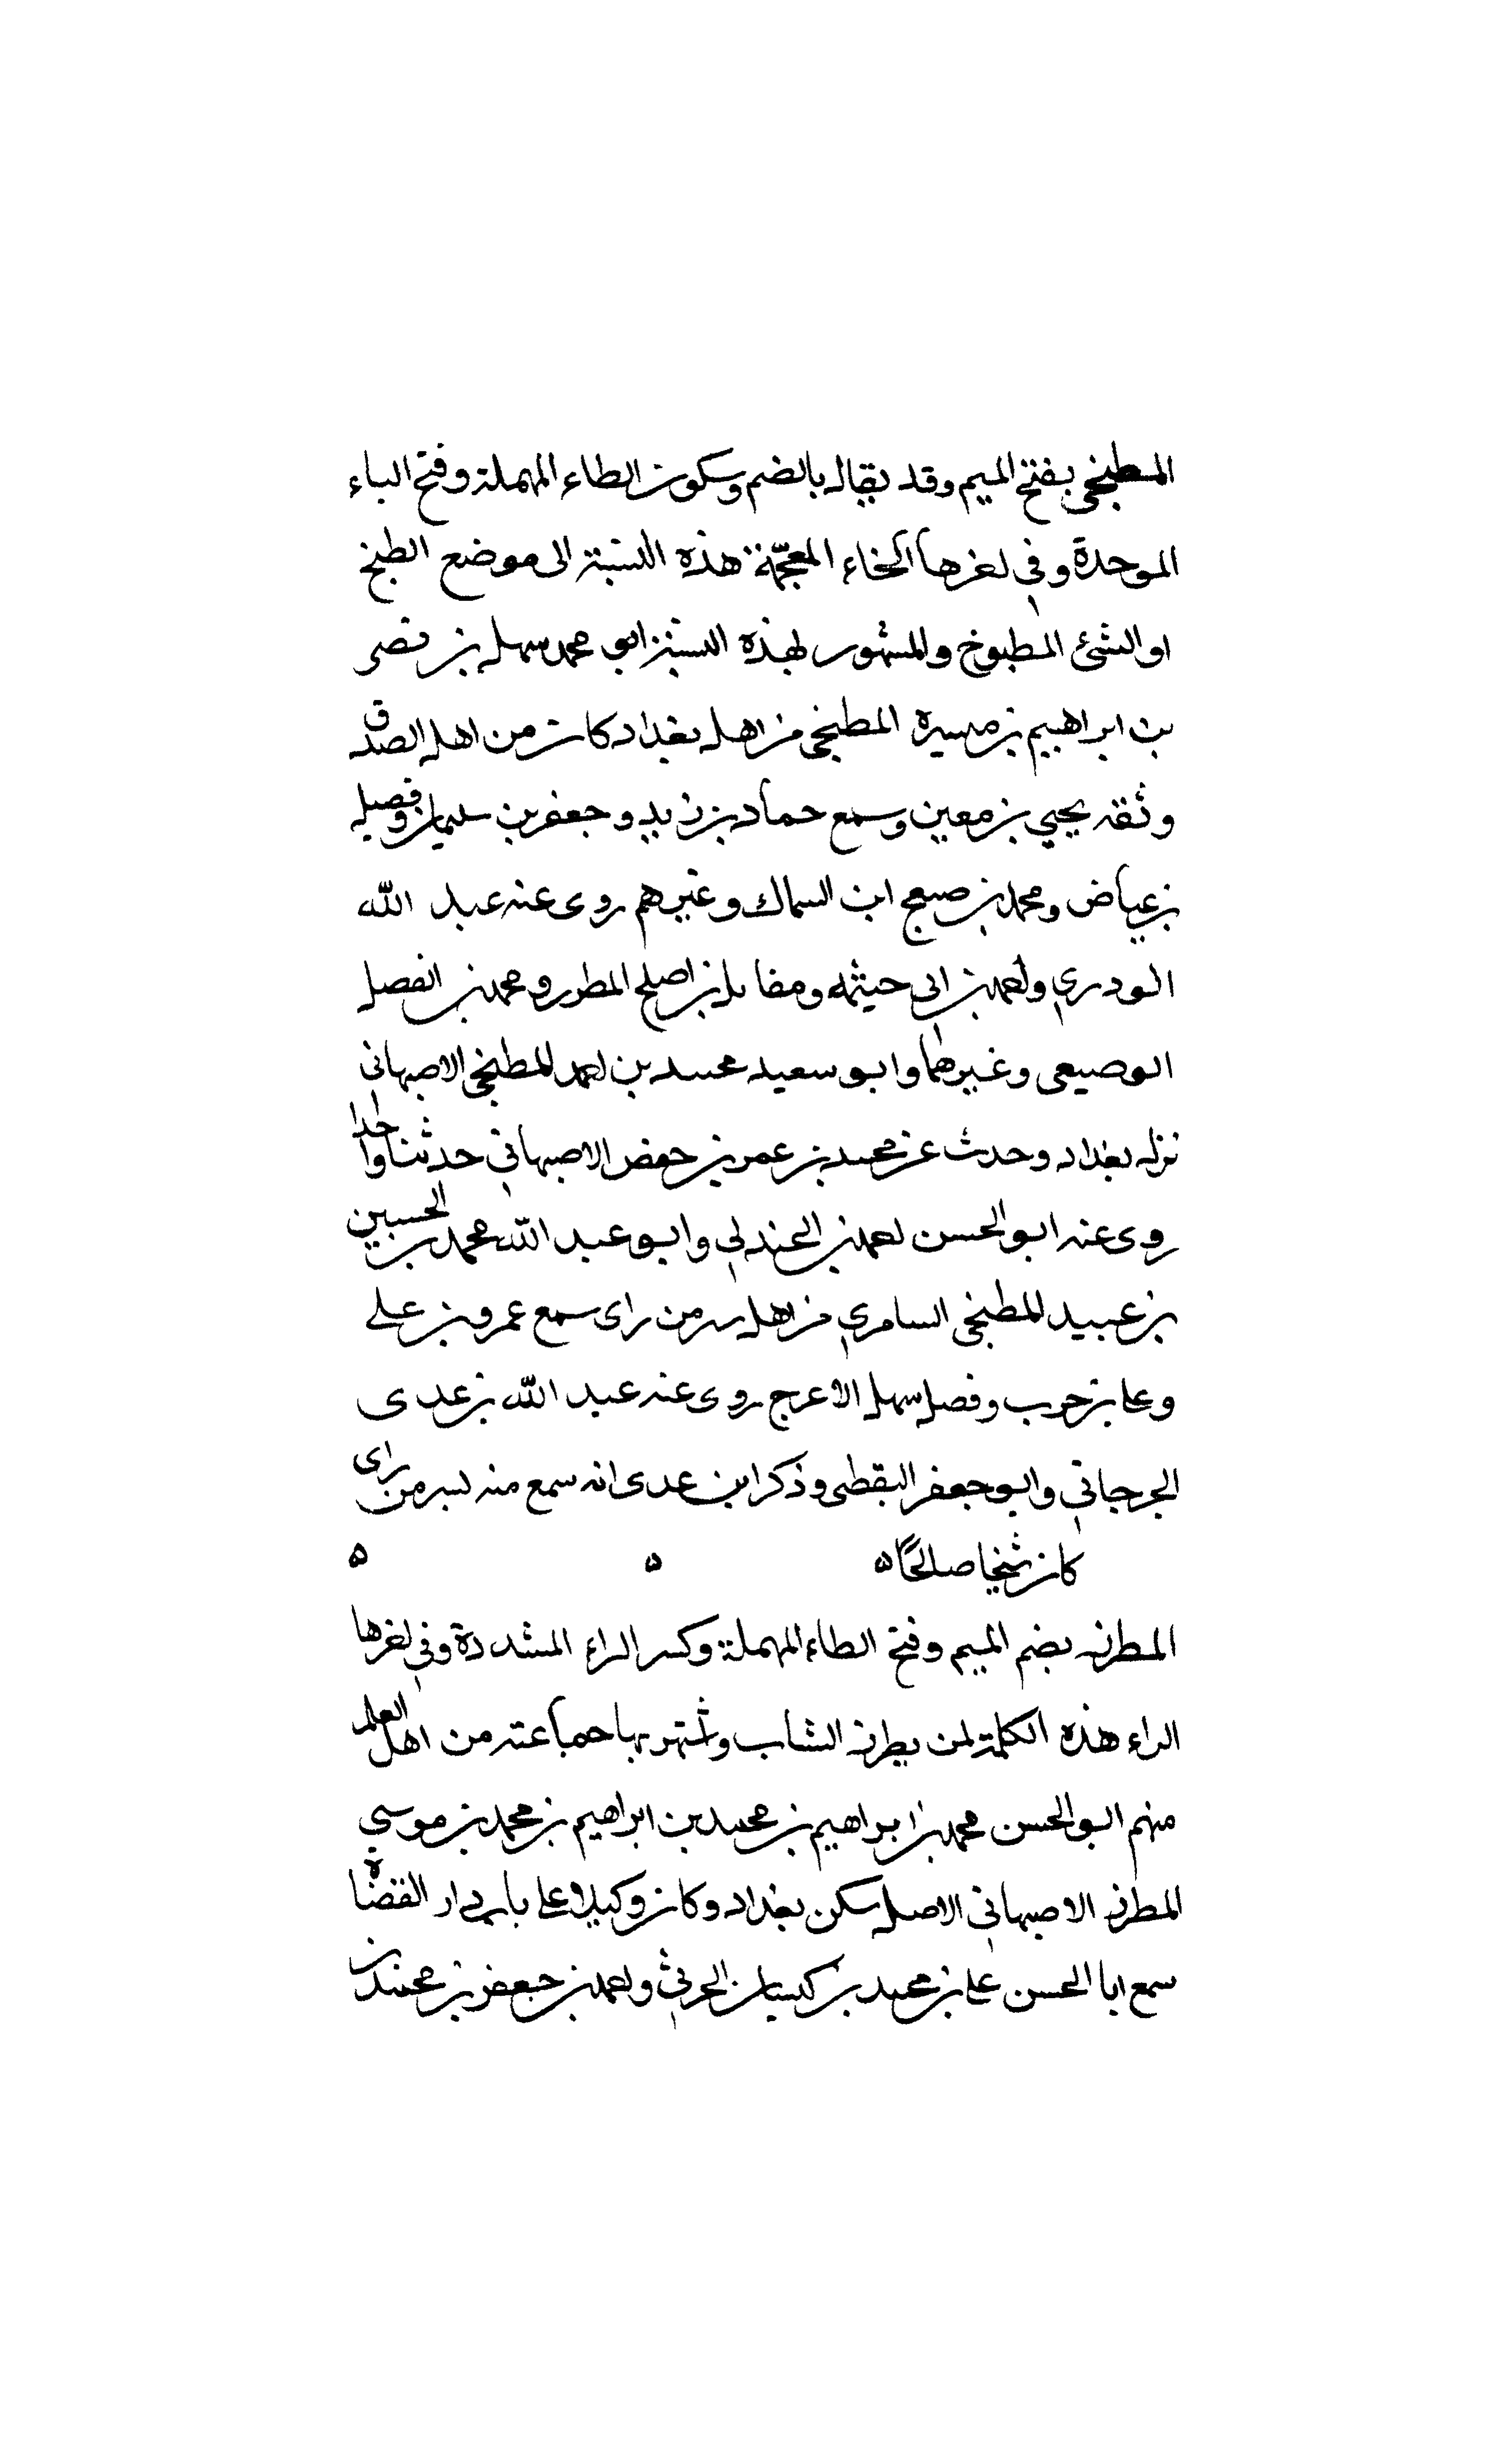 المطبخي بفتح الميم وقد يقال بالضم وسكون الطاء المهملة وفتح الباء
الموحدة وفي اخرها الخاء المعجمة هذه النسبة الى موضع الطبخ
او الشئ المطبوخ والمشهور بهذه النسبة ابو محمد سهل بن نصر
بن ابراهيم بن ميسرة المطبخي من اهل بغداد كان من اهل الصدق
وثقه يحيي بن معين وسمع حماد بن زيد وجعفر بن سليمان وفصيل
بن عياض ومحمد بن صبيح ابن السماك وغيرهم روى عنه عبد الله
الودري واحمد بن ابي حيثمه ومقاتل بن اصلح المطرر ومحمد بن الفصل
الوصيعى وغيرهما وابو سعيد محمد بن احمد المطبخي الاصبهانى
نزل بغداد وحدث عن محمد بن عمر بن حفص الاصبهاني حدثنا واحدا
روى عنه ابو الحسن احمد بن الجندلي وابو عبد الله محمد بن الحسين
بن عبيد المطبخي السامري من اهل سر من راى سمع عمرو بن علي
وعلي بن حرب وفصل سهل الاعرج روى عنه عبد الله بن عدى
الجرجاني وابو جعفر اليقطى وذكر ابن عدى انه سمع منه بسر من راى
كان شيخا صالحًا ه ه ه
المطرز بضم الميم وفتح الطاء المهملة وكسر الراء المشددة وفي اخرها
الراء هذه الكلمة لمن يطرز الشاب واشتهر بها جماعة من اهل العلم
منهم ابو الحسن محمد بن ابراهيم بن محمد بن ابراهيم بن محمد بن موسي
المطرز الاصبهاني الاصل سكن بغداد وكان وكيلا على باب دار القضاة
سمع ابا الحسن علي بن محمد بن كيسان الحربي واحمد بن جعفر بن محمد بن